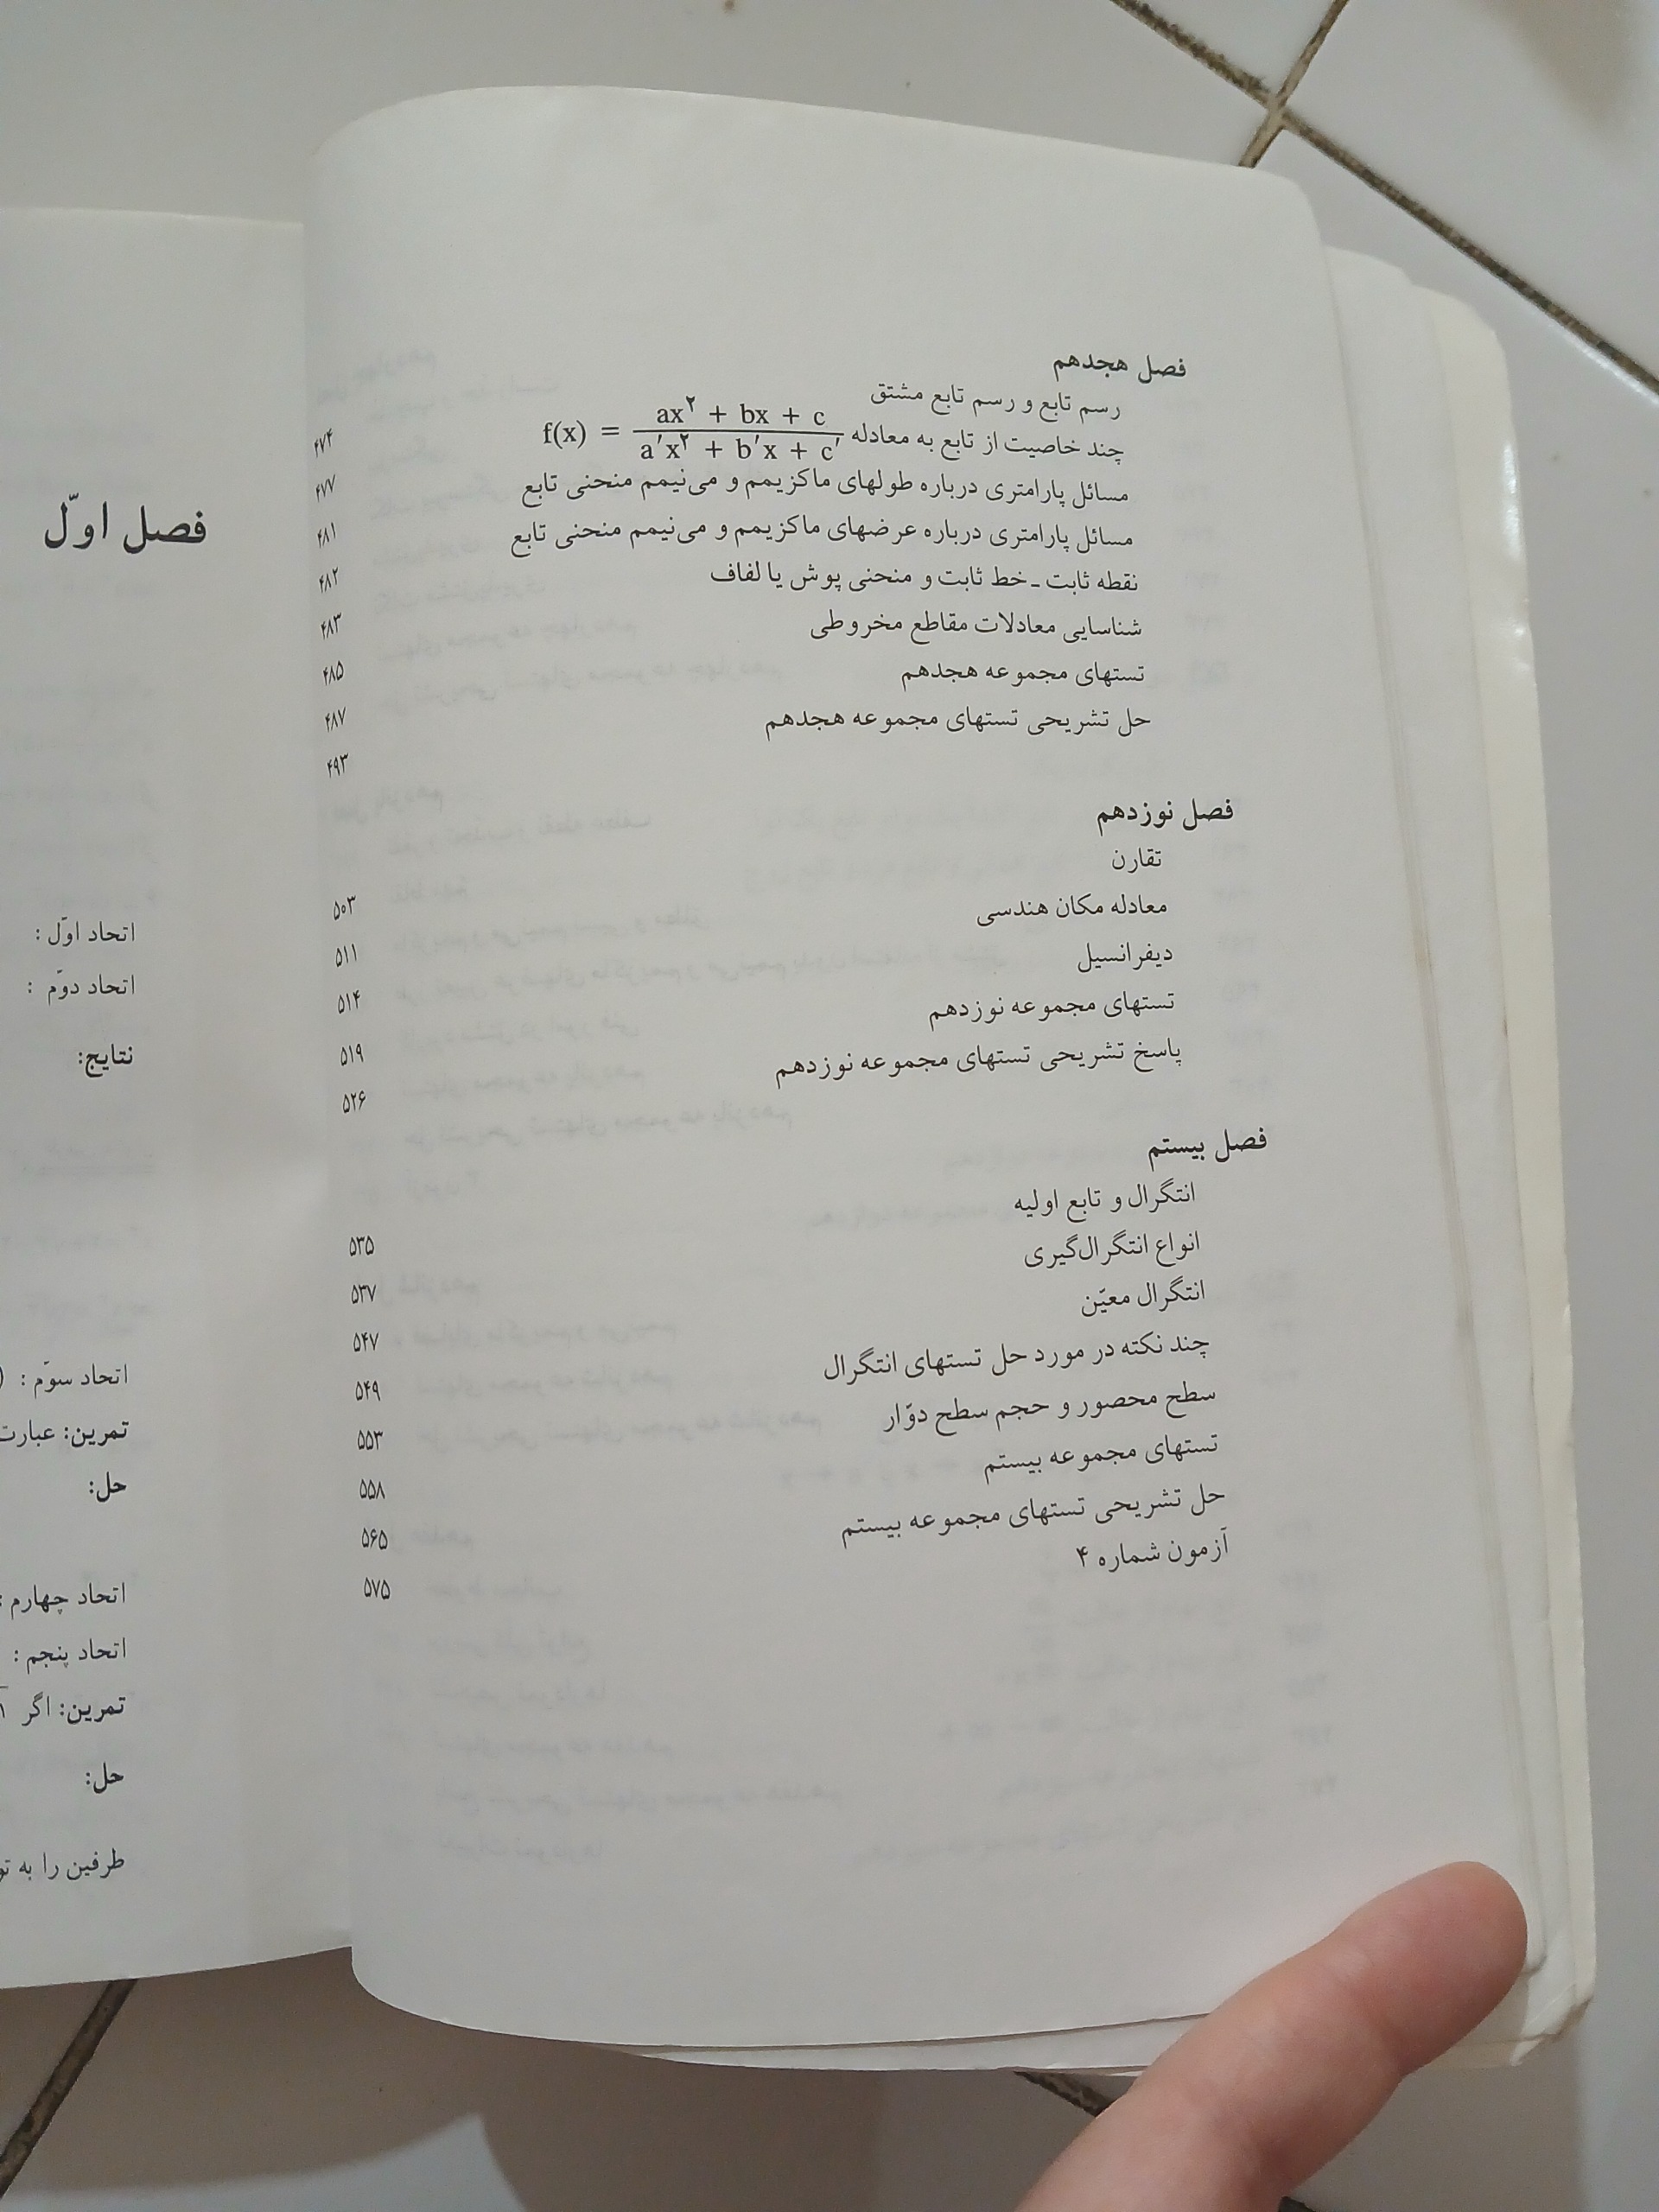 فصل هجدهم
رسم تابع و رسم تابع مشتق ۴۷۴
چند خاصیت از تابع به معادله f(x) = (ax۲ + bx + c) / (a′x۲ + b′x + c′) ۴۷۷
مسائل پارامتری درباره طولهای ماکزیمم و می‌نیمم منحنی تابع ۴۸۱
مسائل پارامتری درباره عرضهای ماکزیمم و می‌نیمم منحنی تابع ۴۸۲
نقطه ثابت ـ خط ثابت و منحنی پوش یا لفاف ۴۸۳
شناسایی معادلات مقاطع مخروطی ۴۸۵
تستهای مجموعه هجدهم ۴۸۷
حل تشریحی تستهای مجموعه هجدهم ۴۹۳
فصل نوزدهم
تقارن ۵۰۳
معادله مکان هندسی ۵۱۱
دیفرانسیل ۵۱۴
تستهای مجموعه نوزدهم ۵۱۹
پاسخ تشریحی تستهای مجموعه نوزدهم ۵۲۶
فصل بیستم
انتگرال و تابع اولیه ۵۳۵
انواع انتگرال‌گیری ۵۳۷
انتگرال معیّن ۵۴۷
چند نکته در مورد حل تستهای انتگرال ۵۴۹
سطح محصور و حجم سطح دوّار ۵۵۳
تستهای مجموعه بیستم ۵۵۸
حل تشریحی تستهای مجموعه بیستم ۵۶۵
آزمون شماره ۴ ۵۷۵
فصل اوّل
اتحاد اوّل :
اتحاد دوّم :
نتایج:
اتحاد سوّم :
تمرین: عبارت
حل:
اتحاد چهارم :
اتحاد پنجم :
تمرین: اگر
حل:
طرفین را به